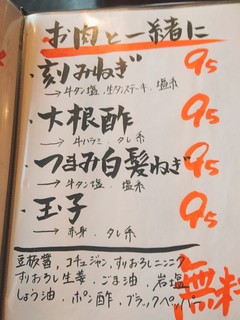 お肉と一緒に
・刻みねぎ 95
→牛タン塩、生タンステーキ、塩系
・大根酢 95
→牛ハラミ、タレ系
・つまみ白髪ねぎ 95
→牛タン塩、塩系
・玉子 95
→赤身、タレ系
豆板醤、コチュジャン、すりおろしニンニク
すりおろし生姜、ごま油、岩塩
しょう油、ポン酢、ブラックペッパー
無料